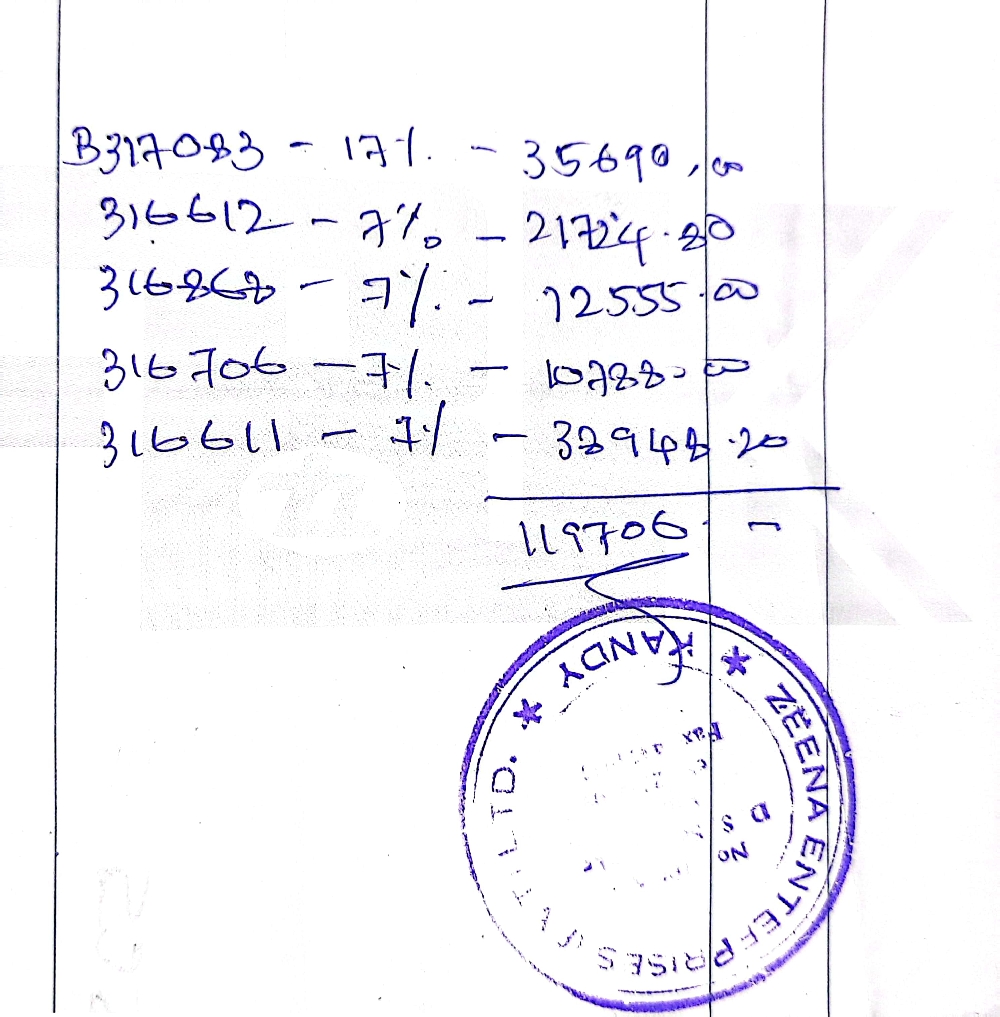 B317083 - 17% - 35690.00
316612 - 7% - 21724.80
316868 - 7% - 12555.00
316706 - 7% - 10788.00
316611 - 7% - 38948.20
119706 -
* KANDY *
ZEENA ENTERPRISES
LTD.
Fax
No